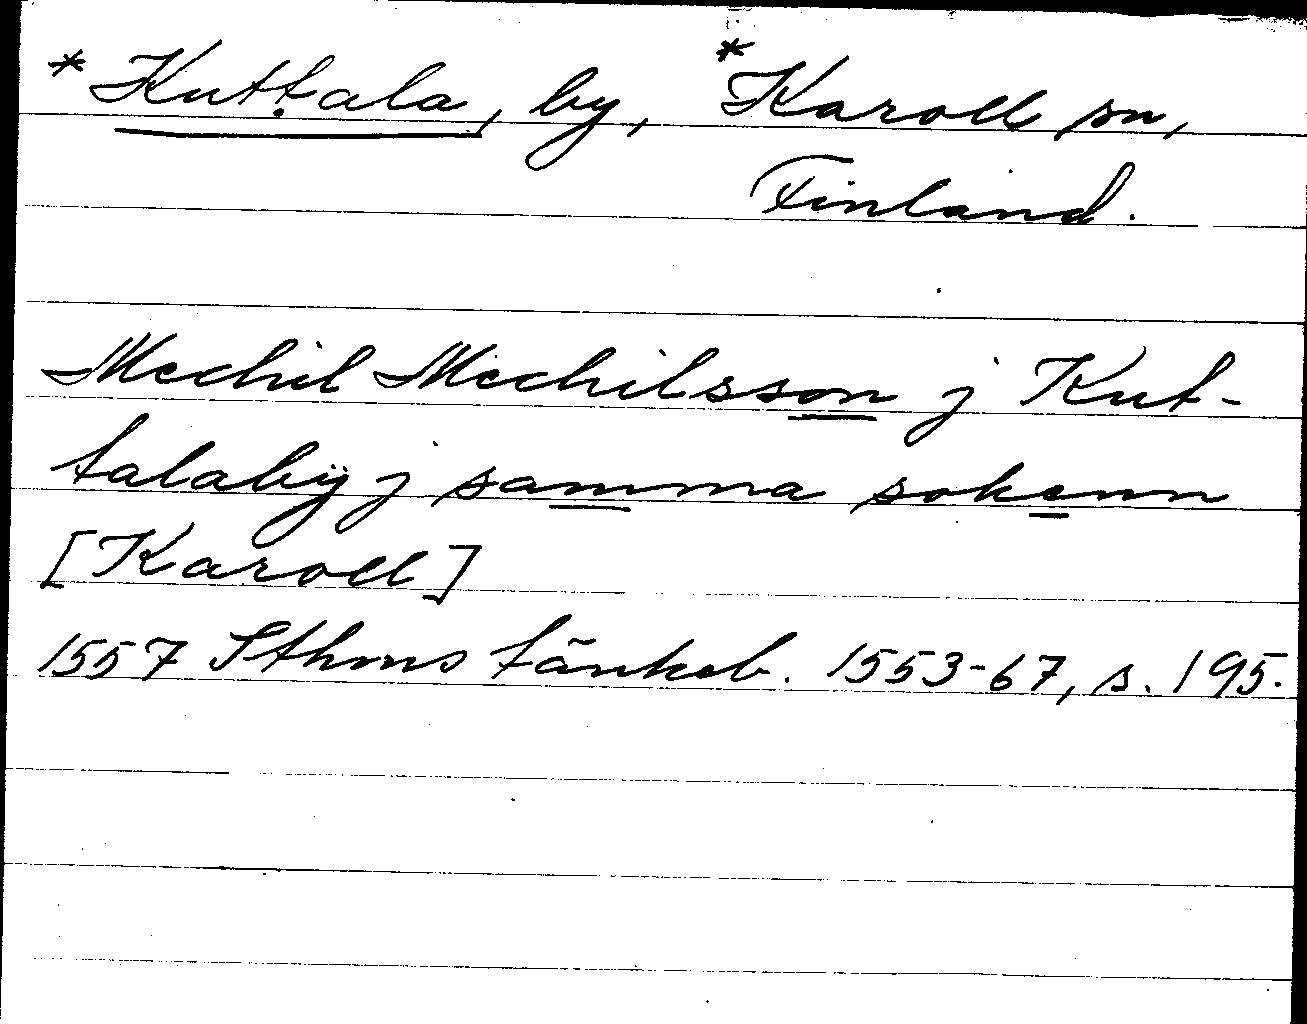 *Kuttala, by, *Karoll sn,
Finland.
Mechil Mechilsson j Kut-
talabÿ j samma sokenn
[Karoll]
1557 Sthms tänkeb. 1553-67, s. 195.